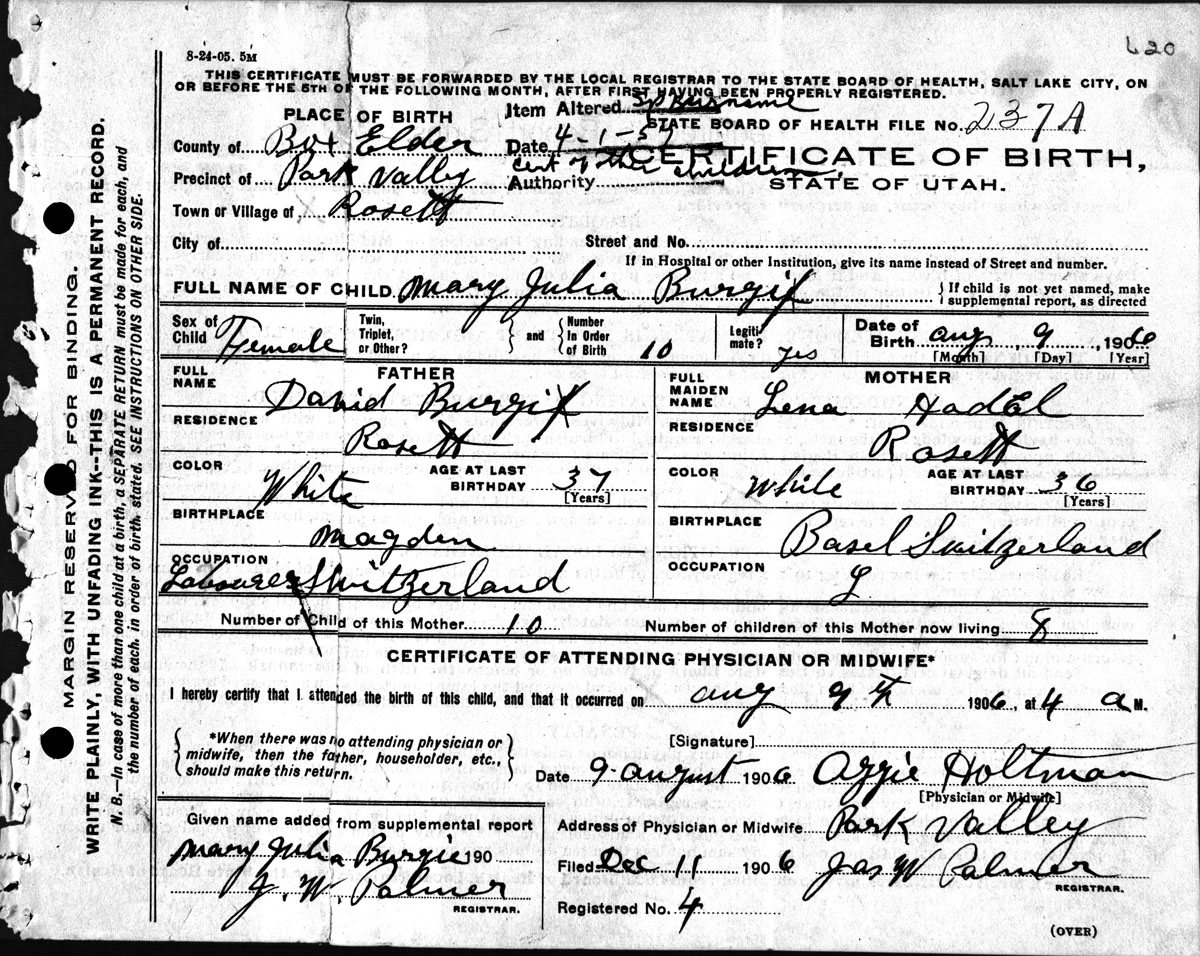 620
8-24-05. 5M
THIS CERTIFICATE MUST BE FORWARDED BY THE LOCAL REGISTRAR TO THE STATE BOARD OF HEALTH, SALT LAKE CITY, ON
OR BEFORE THE 5TH OF THE FOLLOWING MONTH, AFTER FIRST HAVING BEEN PROPERLY REGISTERED.
PLACE OF BIRTH
Item Altered Sp Surname
STATE BOARD OF HEALTH FILE No. 237A
County of Box Elder
Date 4-1-57
CERTIFICATE OF BIRTH,
Precinct of Park Valley
Authority Cert of other children
STATE OF UTAH.
Town or Village of Rosett
City of
Street and No.
If in Hospital or other Institution, give its name instead of Street and number.
FULL NAME OF CHILD Mary Julia Burgi
If child is not yet named, make
supplemental report, as directed
Sex of Child Female
Twin, Triplet, or Other?
and Number In Order of Birth 10
Legitimate? yes
Date of Birth Aug 9, 1906
[Month] [Day] [Year]
FATHER
MOTHER
FULL NAME David Burgi
FULL MAIDEN NAME Lena Hadel
RESIDENCE Rosett
RESIDENCE Rosett
COLOR White
AGE AT LAST BIRTHDAY 37
[Years]
COLOR White
AGE AT LAST BIRTHDAY 36
[Years]
BIRTHPLACE Magden Switzerland
BIRTHPLACE Basel Switzerland
OCCUPATION Labourer
OCCUPATION
Number of Child of this Mother 10
Number of children of this Mother now living 8
CERTIFICATE OF ATTENDING PHYSICIAN OR MIDWIFE*
I hereby certify that I attended the birth of this child, and that it occurred on Aug 9th 1906, at 4 A M.
*When there was no attending physician or
midwife, then the father, householder, etc.,
should make this return.
[Signature]
Date 9 August 1906 Aggie Holtman
[Physician or Midwife]
Given name added from supplemental report
Mary Julia Burgie 190
J. W. Palmer
REGISTRAR.
Address of Physician or Midwife Park Valley
Filed Dec 11 1906 Jas W Palmer
REGISTRAR.
Registered No. 4
(OVER)
MARGIN RESERVED FOR BINDING.
WRITE PLAINLY, WITH UNFADING INK--THIS IS A PERMANENT RECORD.
N. B.—In case of more than one child at a birth, a SEPARATE RETURN must be made for each, and
the number of each, in order of birth, stated. SEE INSTRUCTIONS ON OTHER SIDE.